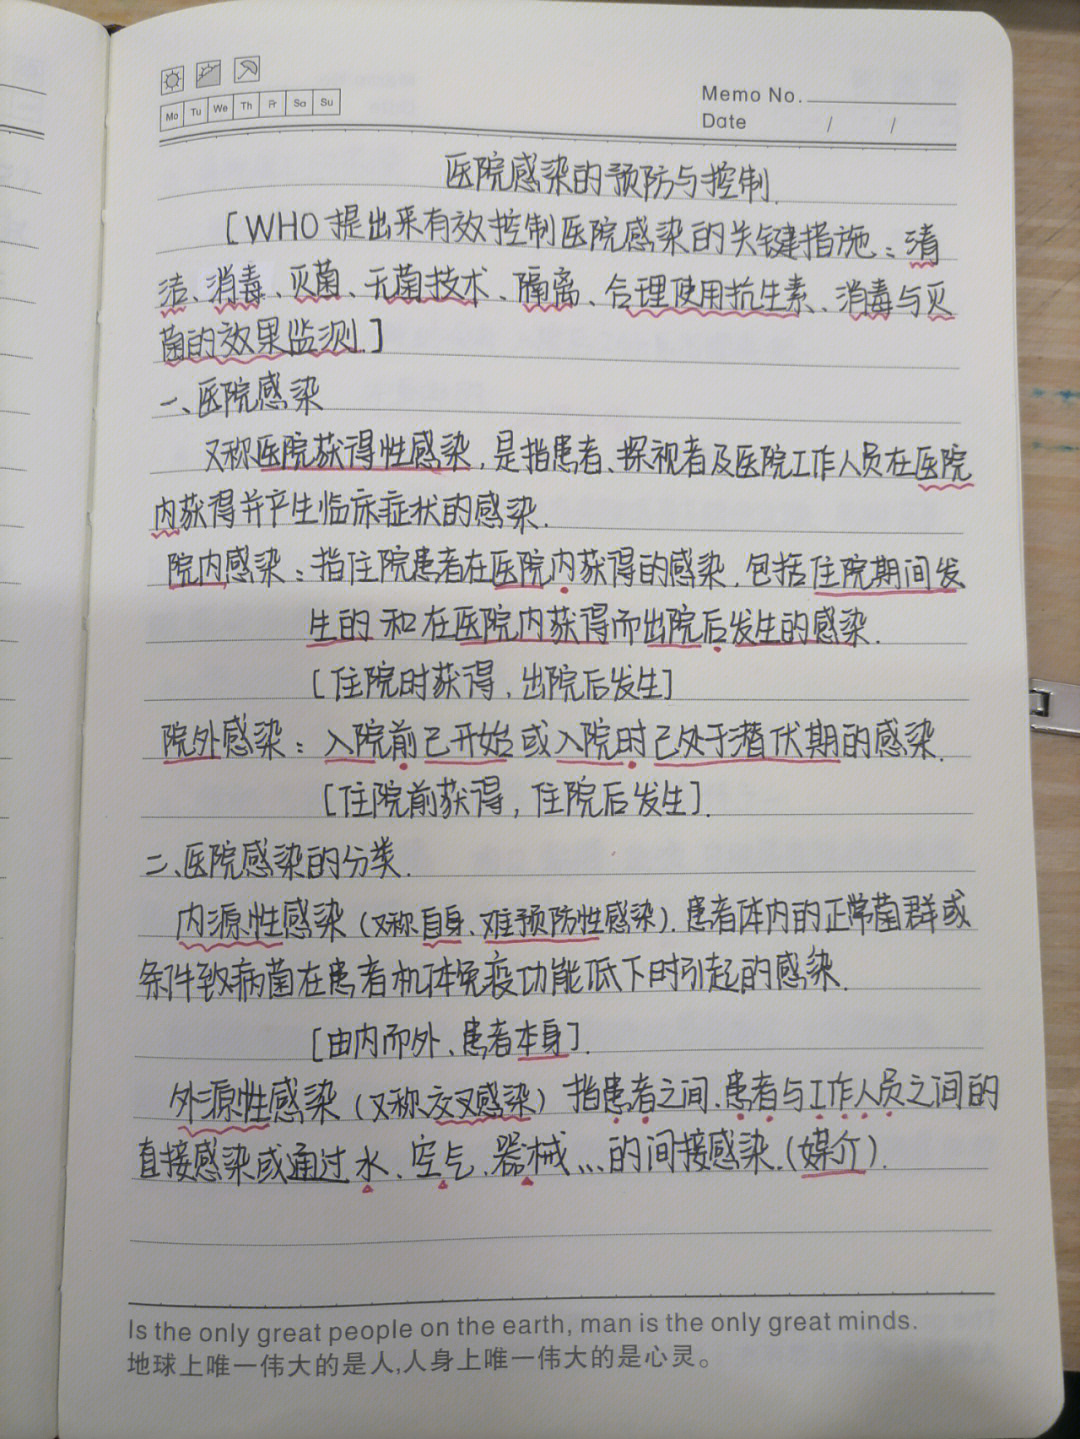 Mo Tu We Th Fr Sa Su
Memo No.
Date / /
医院感染的预防与控制.
[WHO提出来有效控制医院感染的关键措施:清
洁、消毒、灭菌、无菌技术、隔离、合理使用抗生素、消毒与灭
菌的效果监测.]
一、医院感染
又称医院获得性感染,是指患者、探视者及医院工作人员在医院
内获得并产生临床症状的感染.
院内感染:指住院患者在医院内获得的感染.包括住院期间发
生的和在医院内获得而出院后发生的感染.
[住院时获得,出院后发生]
院外感染:入院前已开始或入院时已处于潜伏期的感染.
[住院前获得,住院后发生].
二、医院感染的分类.
内源性感染(又称自身、难预防性感染).患者体内的正常菌群或
条件致病菌在患者机体免疫功能低下时引起的感染.
[由内而外、患者本身].
外源性感染(又称交叉感染)指患者之间.患者与工作人员之间的
直接感染或通过水、空气、器械...的间接感染.(媒介).
Is the only great people on the earth, man is the only great minds.
地球上唯一伟大的是人,人身上唯一伟大的是心灵。